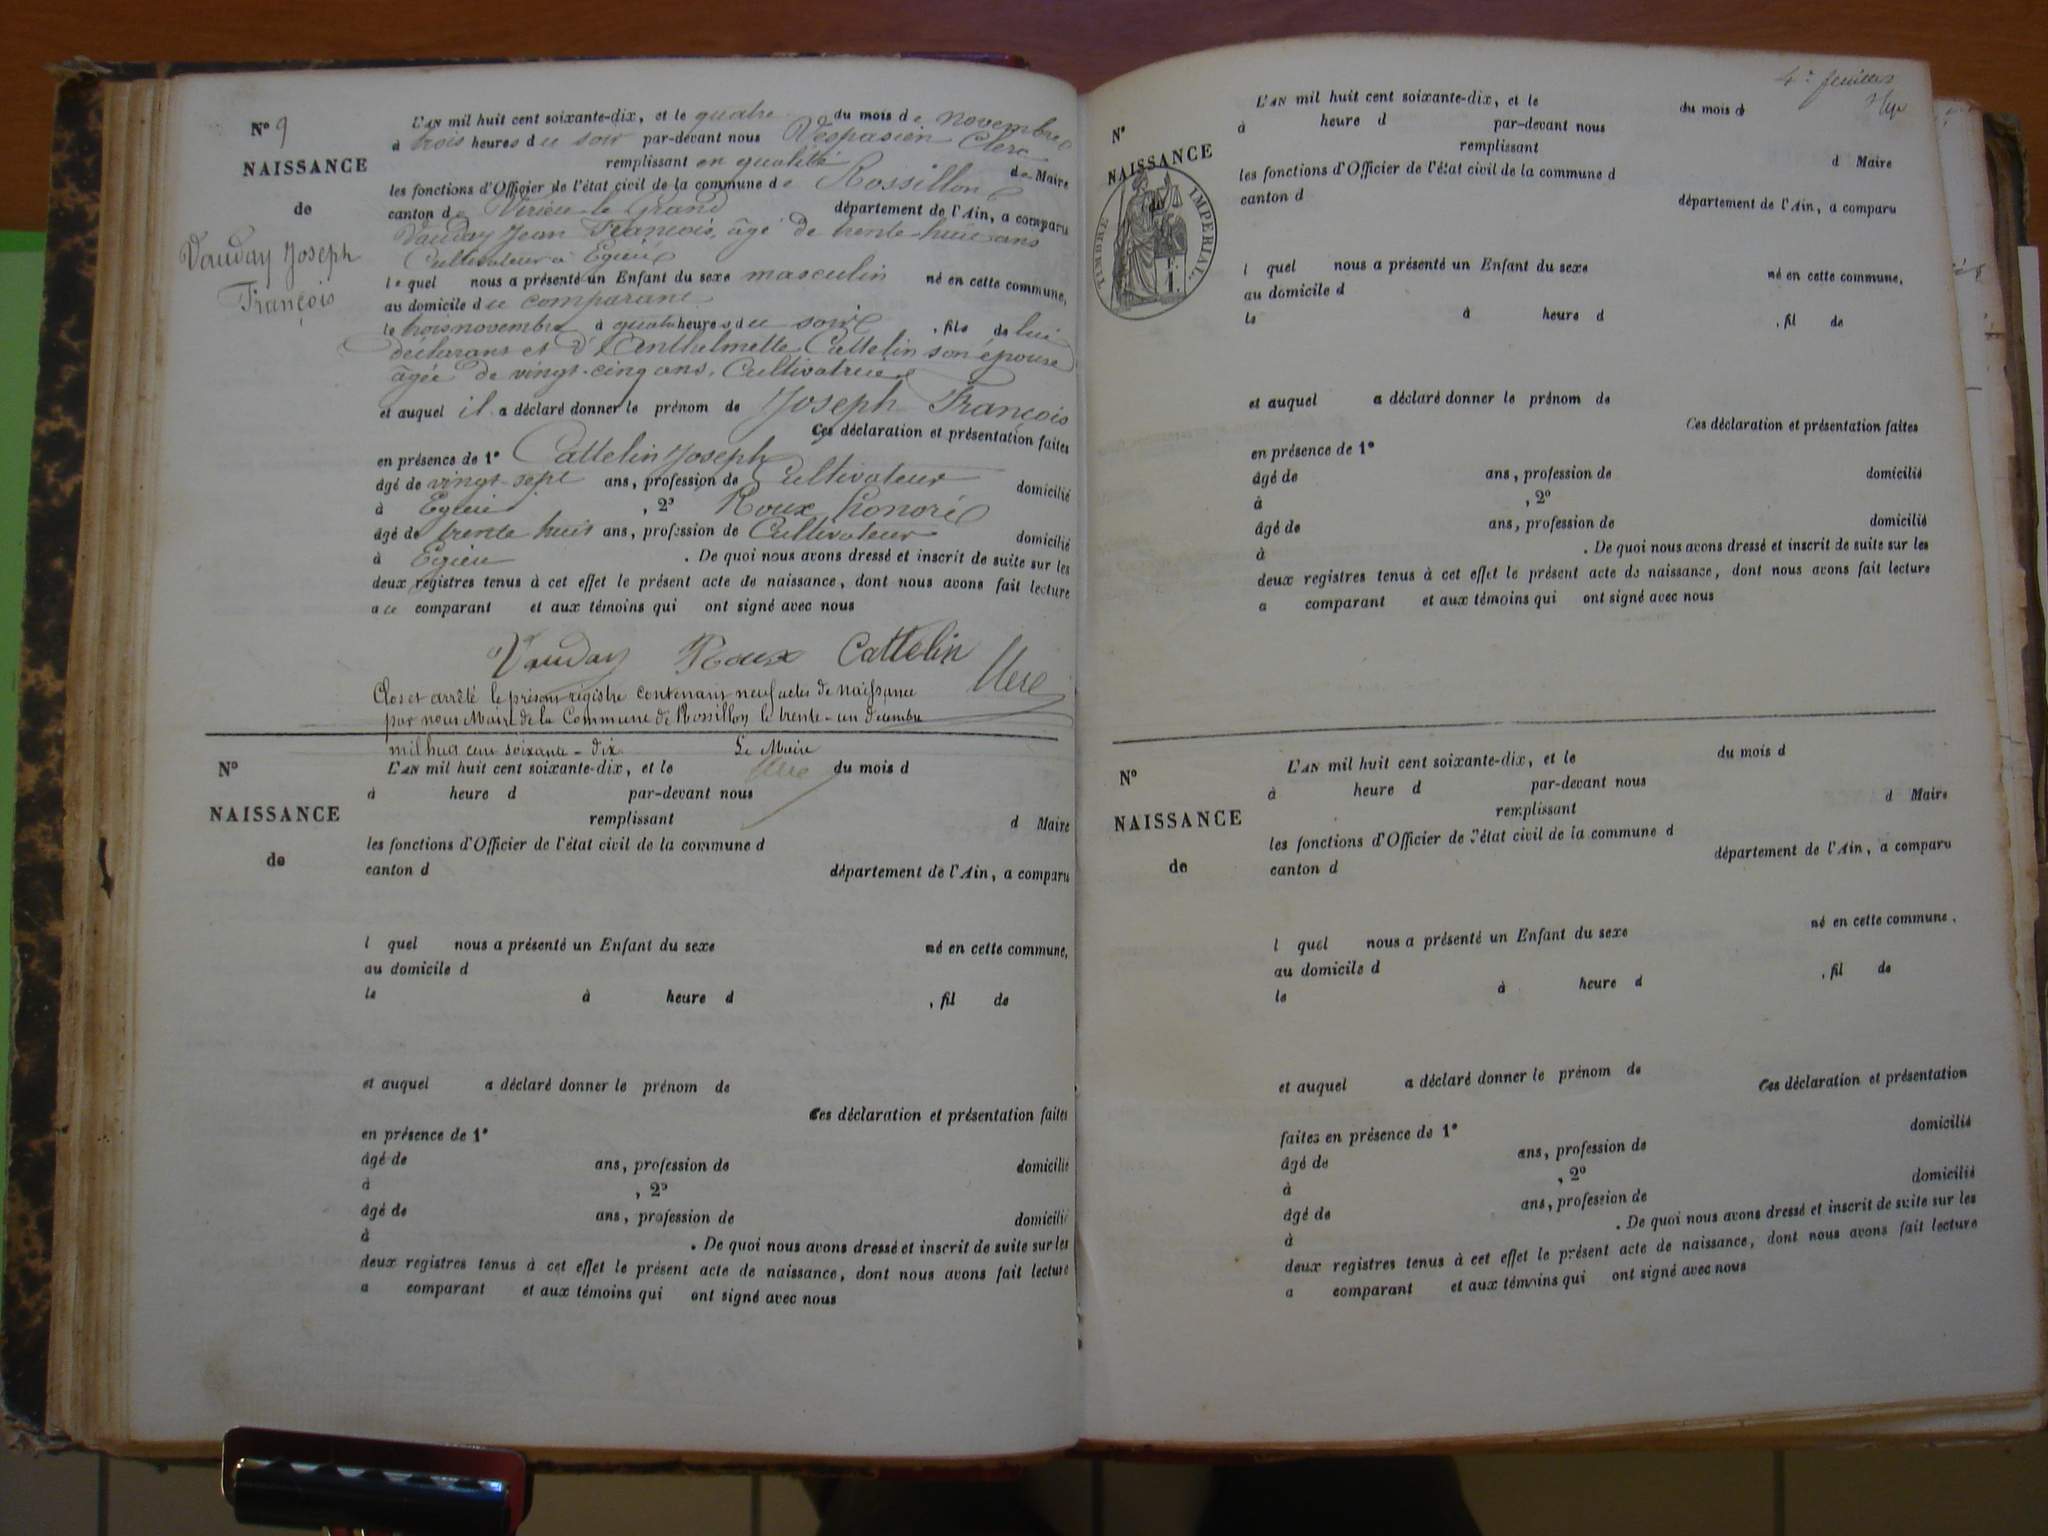 N° 9
NAISSANCE
de
Vauday Joseph
François
L'AN mil huit cent soixante-dix, et le quatre du mois de novembre
à trois heures du soir par-devant nous Vespasien Clerc
remplissant en qualité de Maire
les fonctions d'Officier de l'état civil de la commune de Rossillon
canton de Virieu le Grand département de l'Ain, a comparu
Vauday Jean François, âgé de trente-huit ans
Cultivateur à Egieu
lequel nous a présenté un Enfant du sexe masculin né en cette commune,
au domicile du comparant
le trois novembre à quatre heures du soir, fils de lui
déclarant et d'Anthelmette Cattelin son épouse
âgée de vingt-cinq ans, Cultivatrice
et auquel il a déclaré donner le prénom de Joseph François
Ces déclaration et présentation faites
en présence de 1° Cattelin Joseph
âgé de vingt-sept ans, profession de Cultivateur domicilié
à Egieu, 2° Roux honoré
âgé de trente huit ans, profession de Cultivateur domicilié
à Egieu. De quoi nous avons dressé et inscrit de suite sur les
deux registres tenus à cet effet le présent acte de naissance, dont nous avons fait lecture
au comparant et aux témoins qui ont signé avec nous
Vauday Roux Cattelin Clerc
Clos et arrêté le présent régistre contenant neuf actes de naissance
par nous Maire de la Commune de Rossillon le trente-un décembre
mil huit cent soixante-dix Le Maire
Clerc
N°
NAISSANCE
de
L'AN mil huit cent soixante-dix, et le du mois d
à heure d par-devant nous
remplissant d Maire
les fonctions d'Officier de l'état civil de la commune d
canton d département de l'Ain, a comparu
l quel nous a présenté un Enfant du sexe né en cette commune,
au domicile d
le à heure d , fil de
et auquel a déclaré donner le prénom de
Ces déclaration et présentation faites
en présence de 1°
âgé de ans, profession de domicilié
à , 2°
âgé de ans, profession de domicilié
à . De quoi nous avons dressé et inscrit de suite sur les
deux registres tenus à cet effet le présent acte de naissance, dont nous avons fait lecture
a comparant et aux témoins qui ont signé avec nous
4e feuillet
N°
NAISSANCE
de
TIMBRE IMPERIAL.
L'AN mil huit cent soixante-dix, et le du mois d
à heure d par-devant nous
remplissant d Maire
les fonctions d'Officier de l'état civil de la commune d
canton d département de l'Ain, a comparu
l quel nous a présenté un Enfant du sexe né en cette commune,
au domicile d
le à heure d , fil de
et auquel a déclaré donner le prénom de
Ces déclaration et présentation faites
en présence de 1°
âgé de ans, profession de domicilié
à , 2°
âgé de ans, profession de domicilié
à . De quoi nous avons dressé et inscrit de suite sur les
deux registres tenus à cet effet le présent acte de naissance, dont nous avons fait lecture
a comparant et aux témoins qui ont signé avec nous
N°
NAISSANCE
de
L'AN mil huit cent soixante-dix, et le du mois d
à heure d par-devant nous
remplissant d Maire
les fonctions d'Officier de l'état civil de la commune d
canton d département de l'Ain, a comparu
l quel nous a présenté un Enfant du sexe né en cette commune.
au domicile d
le à heure d , fil de
et auquel a déclaré donner le prénom de
Ces déclaration et présentation
faites en présence de 1°
âgé de ans, profession de domicilié
à , 2°
âgé de ans, profession de domicilié
à . De quoi nous avons dressé et inscrit de suite sur les
deux registres tenus à cet effet le présent acte de naissance, dont nous avons fait lecture
a comparant et aux témoins qui ont signé avec nous